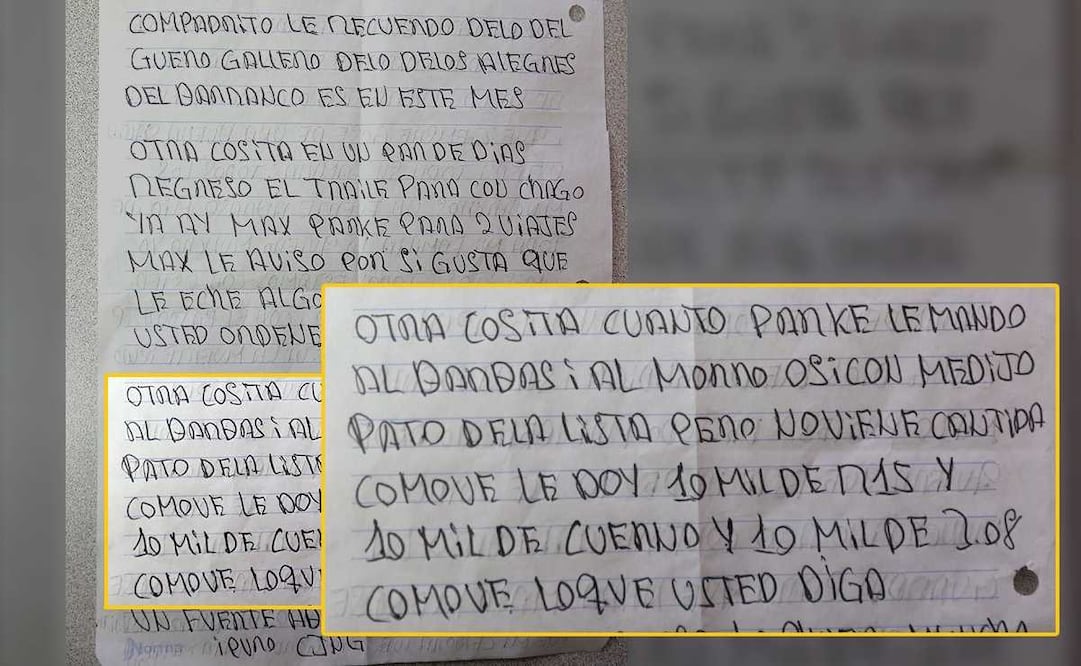 COMPADRITO LE RECUERDO DELO DEL
GUERO GALLERO DELO DELOS ALEGRES
DEL BARRANCO ES EN ESTE MES
OTRA COSITA EN UN PAR DE DIAS
REGRESO EL TRAILE PARA CON CHAGO
YA AY MAX PARKE PARA 2 VIAJES
MAX LE AVISO POR SI GUSTA QUE
LE ECHE ALGO
USTED ORDENE
OTRA COSITA CU
AL BARBAS i AL
PATO DELA LIST
COMOVE LE DOY
10 MIL DE CUER
COMOVE LOQV
UN FUERTE AB
iPURO CJNG
OTRA COSITA CUANTO PARKE LE MANDO
AL BARBAS i AL MORRO OSiCON MEDIJO
PATO DELA LISTA PERO NOVIENE CANTIDA
COMOVE LE DOY 10 MIL DE R15 Y
10 MIL DE CUERNO Y 10 MIL DE 3.08
COMOVE LOQVE USTED DIGA